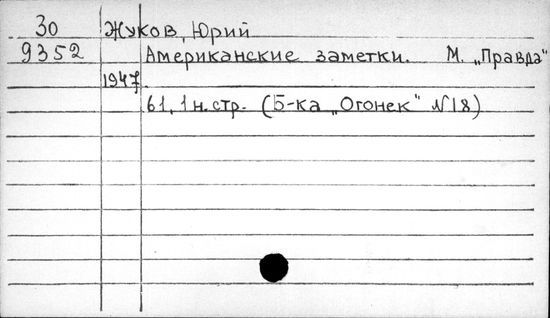 30 Жуков, Юрий
9352 Американские заметки. М. „Правда"
1947.
61, 1 н. стр. (Б-ка „Огонек" N18)